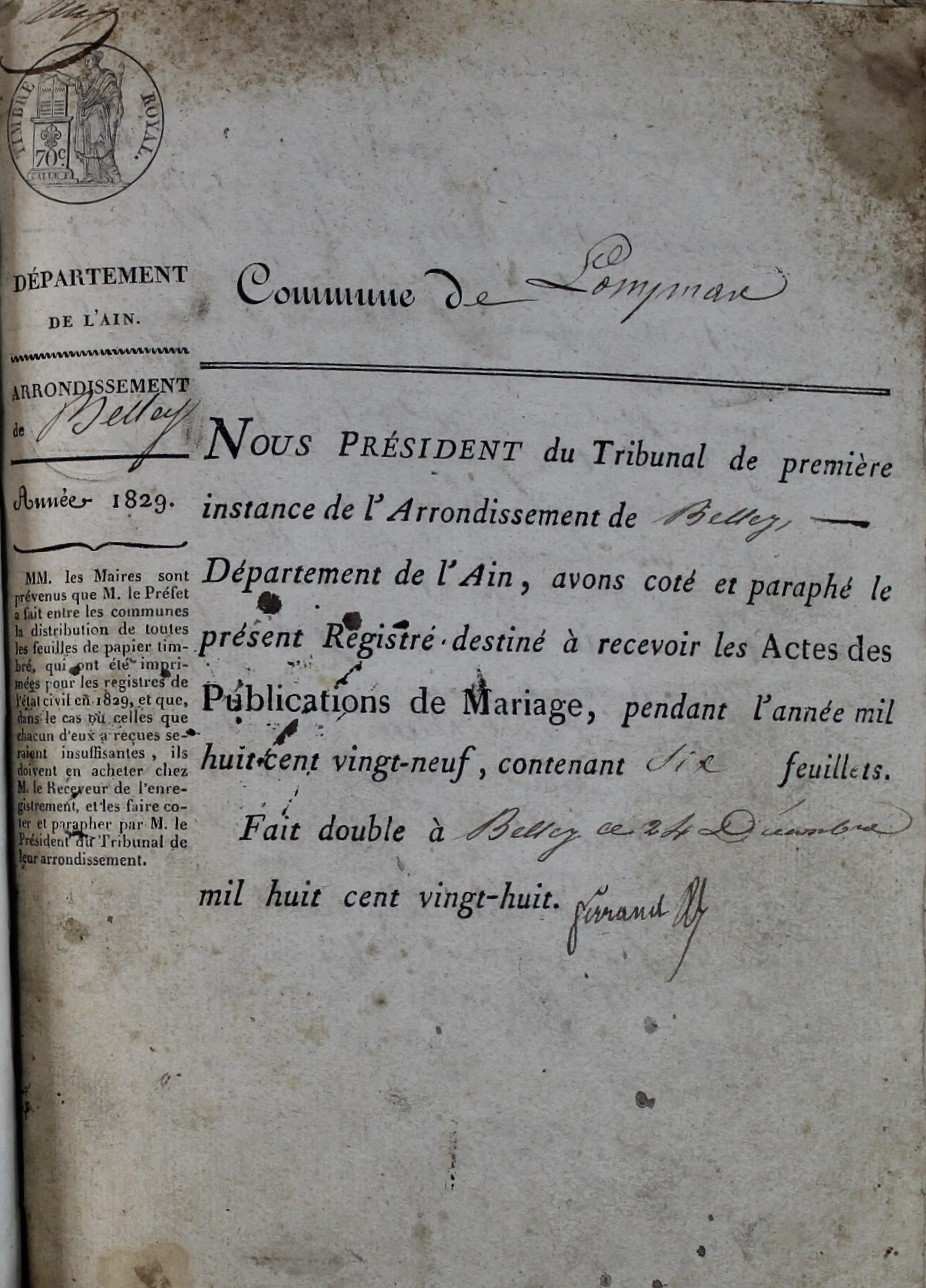 TIMBRE ROYAL.
70c
DÉPARTEMENT
DE L'AIN.
ARRONDISSEMENT
de Belley
Année 1829.
MM. les Maires sont
prévenus que M. le Préfet
a fait entre les communes
la distribution de toutes
les feuilles de papier tim-
bré, qui ont été impri-
mées pour les registres de
l'état civil en 1829, et que,
dans le cas où celles que
chacun d'eux a reçues se-
raient insuffisantes, ils
doivent en acheter chez
M. le Receveur de l'enre-
gistrement, et les faire co-
ter et parapher par M. le
Président du Tribunal de
leur arrondissement.
Commune de Lompnax
NOUS PRÉSIDENT du Tribunal de première
instance de l'Arrondissement de Belley,
Département de l'Ain, avons coté et paraphé le
présent Registre destiné à recevoir les Actes des
Publications de Mariage, pendant l'année mil
huit cent vingt-neuf, contenant six feuillets.
Fait double à Belley ce 24 Décembre
mil huit cent vingt-huit. ferrand